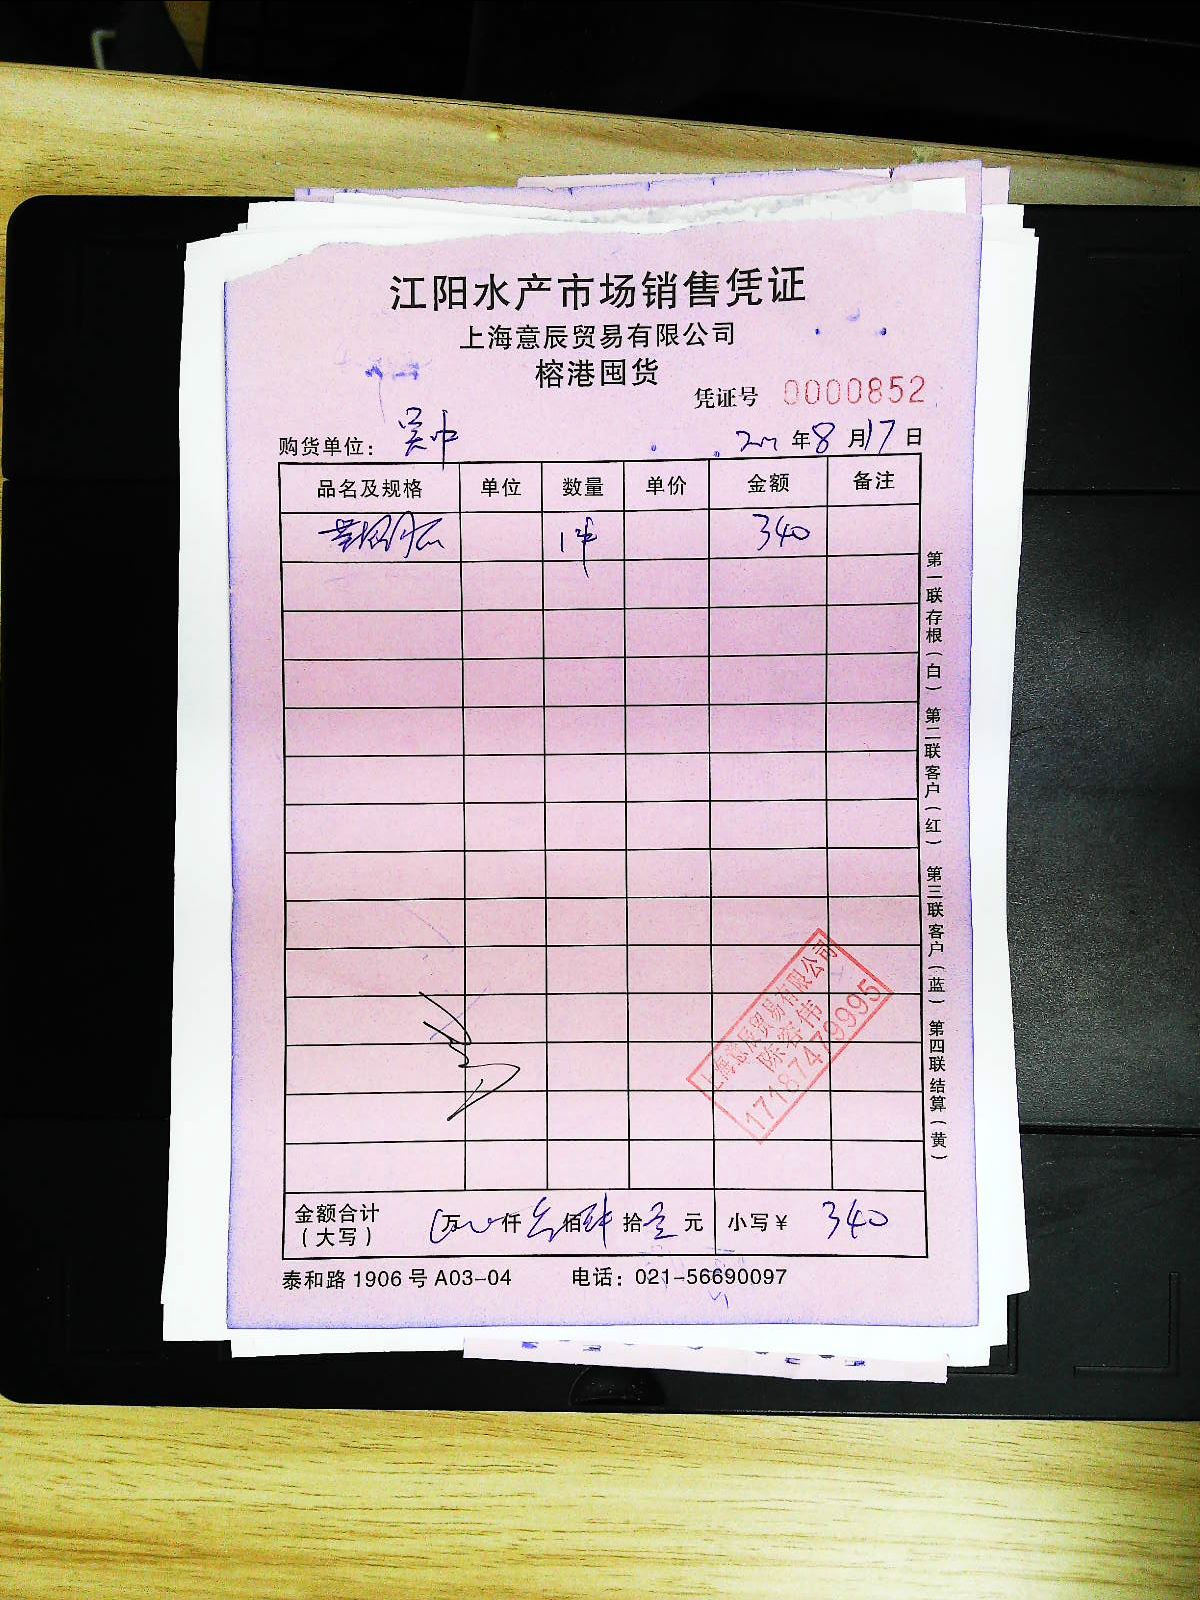 江阳水产市场销售凭证
上海意辰贸易有限公司
榕港囤货
凭证号 0000852
购货单位: 吴中 年8月17日
品名及规格 单位 数量 单价 金额 备注
1件 340
金额合计 万 仟 叁佰肆拾 元 小写¥ 340
(大写)
泰和路1906号A03-04 电话: 021-56690097
第一联存根(白) 第二联客户(红) 第三联客户(蓝) 第四联结算(黄)
上海意辰贸易有限公司
陈容伟
17187479995